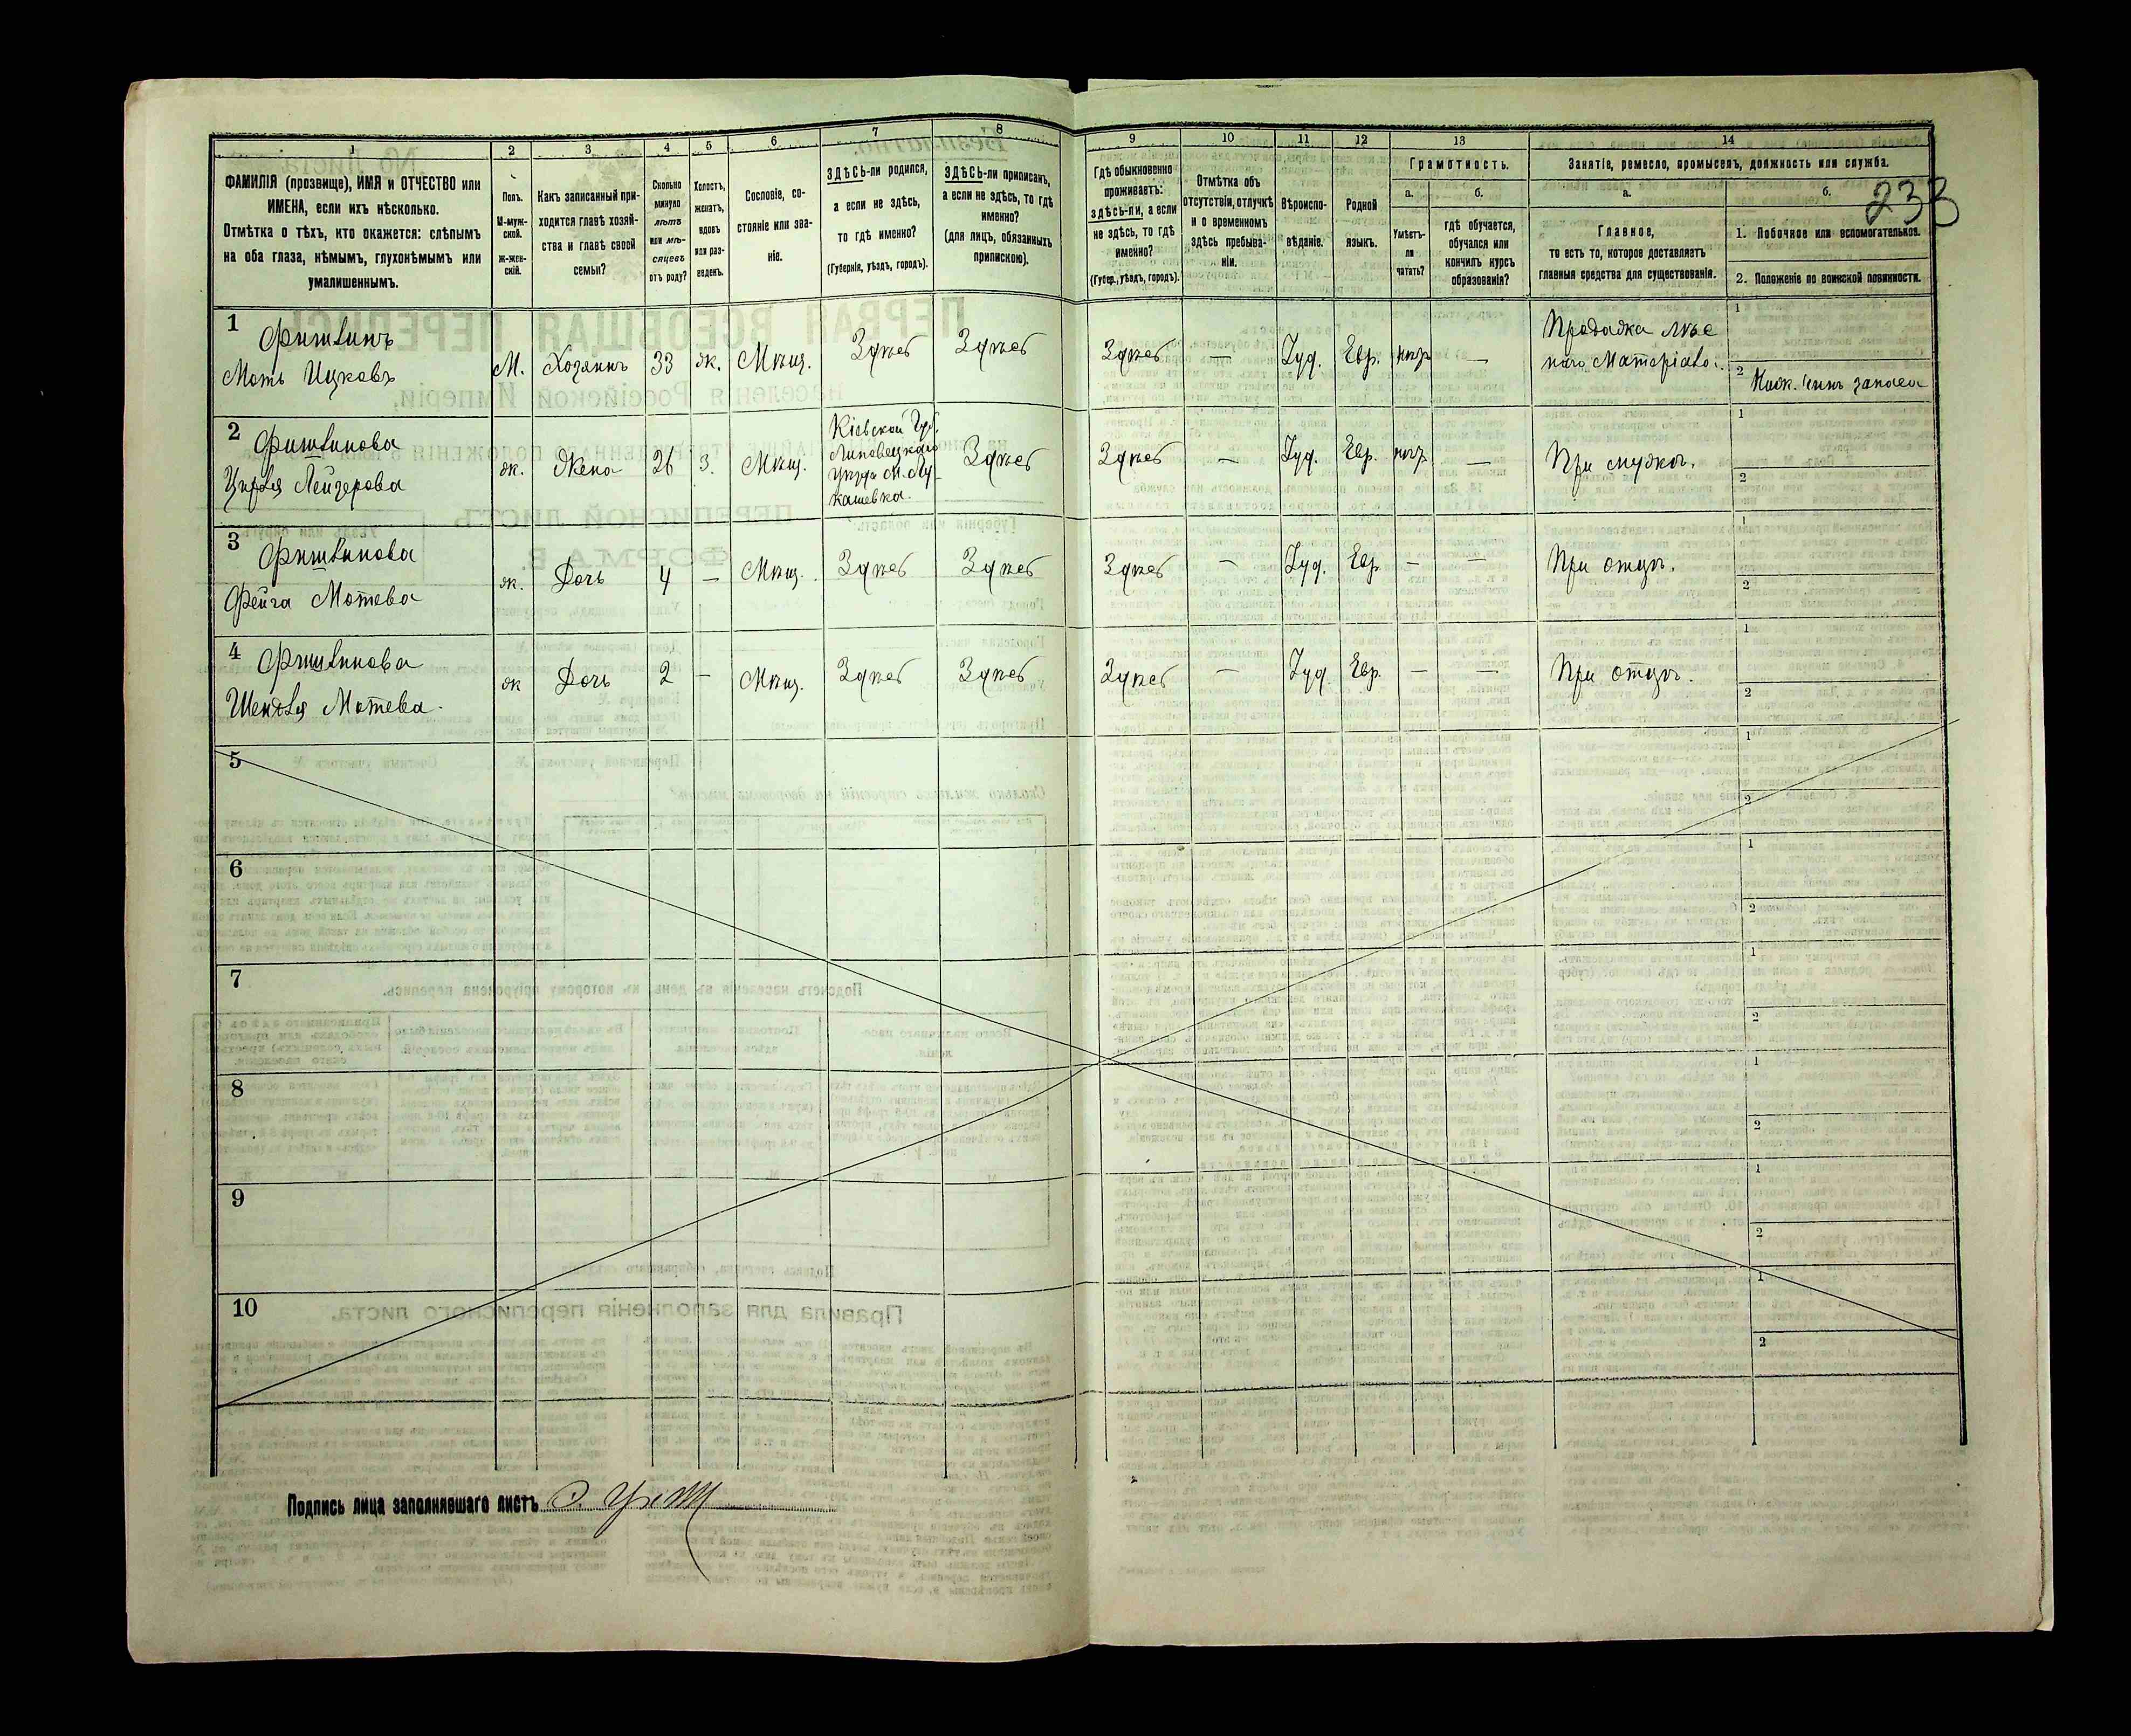 1 2 3 4 5 6 7 8 9 10 11 12 13 14
ФАМИЛІЯ (прозвище), ИМЯ и ОТЧЕСТВО или
ИМЕНА, если ихъ нѣсколько.
Отмѣтка о тѣхъ, кто окажется: слѣпымъ
на оба глаза, нѣмымъ, глухонѣмымъ или
умалишеннымъ.
Полъ.
М-муж-
ской.
Ж-жен-
скій.
Какъ записанный при-
ходится главѣ хозяй-
ства и главѣ своей
семьи?
Сколько
минуло
лѣтъ
или мѣ-
сяцевъ
отъ роду?
Холостъ,
женатъ,
вдовъ
или раз-
веденъ.
Сословіе, со-
стояніе или зва-
ніе.
ЗДѢСЬ-ли родился,
а если не здѣсь,
то гдѣ именно?
(Губернія, уѣздъ, городъ).
ЗДѢСЬ-ли приписанъ,
а если не здѣсь, то гдѣ
именно?
(для лицъ, обязанныхъ
припискою).
Гдѣ обыкновенно
проживаетъ:
здѣсь-ли, а если
не здѣсь, то гдѣ
именно?
(Губер., уѣздъ, городъ).
Отмѣтка объ
отсутствіи, отлучкѣ
и о временномъ
здѣсь пребыва-
ніи.
Вѣроиспо-
вѣданіе.
Родной
языкъ.
Грамотность.
а.
Умѣетъ-
ли
читать?
б.
гдѣ обучается,
обучался или
кончилъ курсъ
образованія?
Занятіе, ремесло, промыселъ, должность или служба.
а.
Главное,
то есть то, которое доставляетъ
главныя средства для существованія.
б.
233
1. Побочное или вспомогательное.
2. Положеніе по воинской повинности.
1 Фишбинъ
Моть Ицковъ
М. Хозяинъ 33 ж. Мѣщ. Здѣсь Здѣсь Здѣсь — Іуд. Евр. нѣтъ —
Продажа лѣс
наго Матеріала.
1
2 Ниж. чинъ запаса
2 Фишбинова
Лейзерова
ж. Жена 26 З. Мѣщ.
Кіевской Губ.
Липовецкаго
уѣзда М. Лу-
кашевка.
Здѣсь Здѣсь — Іуд. Евр. нѣтъ — При мужѣ.
1
2
3 Фишбинова
Фейга Мотева
ж. Дочь 4 — Мѣщ. Здѣсь Здѣсь Здѣсь — Іуд. Евр. — — При отцѣ.
1
2
4 Фишбинова
Шендля Мотева.
ж Дочь 2 — Мѣщ. Здѣсь Здѣсь Здѣсь — Іуд. Евр. — — При отцѣ.
1
2
5
1
2
6
1
2
7
1
2
8
1
2
9
1
2
10
1
2
Подпись лица заполнявшаго листъ